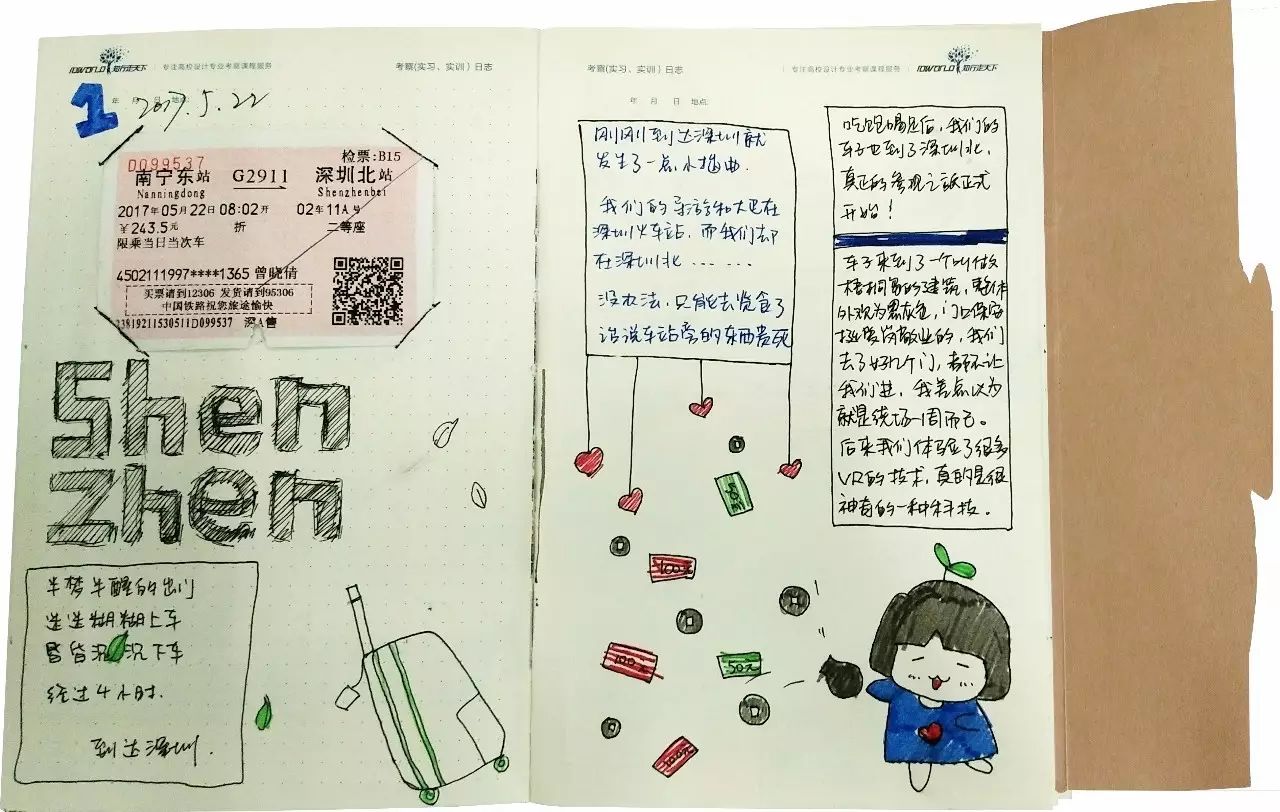 IDWORLD 知行走天下 | 专注高校设计专业考察课程服务
考察(实习、实训）日志
年 月 日 地点:
1 2017.5.22
D099537
检票:B15
南宁东站 G2911 深圳北站
Nanningdong Shenzhenbei
2017年05月22日08:02开 02车11A号
￥243.5元 折 二等座
限乘当日当次车
4502111997****1365 曾晓倩
买票请到12306 发货请到95306
中国铁路祝您旅途愉快
33819211530511D099537 深A售
Shen
Zhen
半梦半醒的出门
迷迷糊糊上车
昏昏沉沉下车
经过4小时.
到达深圳.
考察(实习、实训）日志
| 专注高校设计专业考察课程服务 | IDWORLD 知行走天下
年 月 日 地点:
刚刚到达深圳就
发生了一点小插曲.
我们的导游和大巴在
深圳火车站,而我们却
在深圳北……
没办法,只能去觅食了
话说车站旁的东西贵死
吃饱喝足后,我们的
车子也到了深圳北,
真正的参观之旅正式
开始!
车子来到了一个叫做
梧桐岛的建筑,整体
外观为黑灰色,门口保安
挺爱岗敬业的,我们
去了好几个门,都不让
我们进,我差点以为
就是绕场一周而已。
后来我们体验了很多
VR的技术,真的是很
神奇的一种科技.
50元
100元
100元
50元
100元